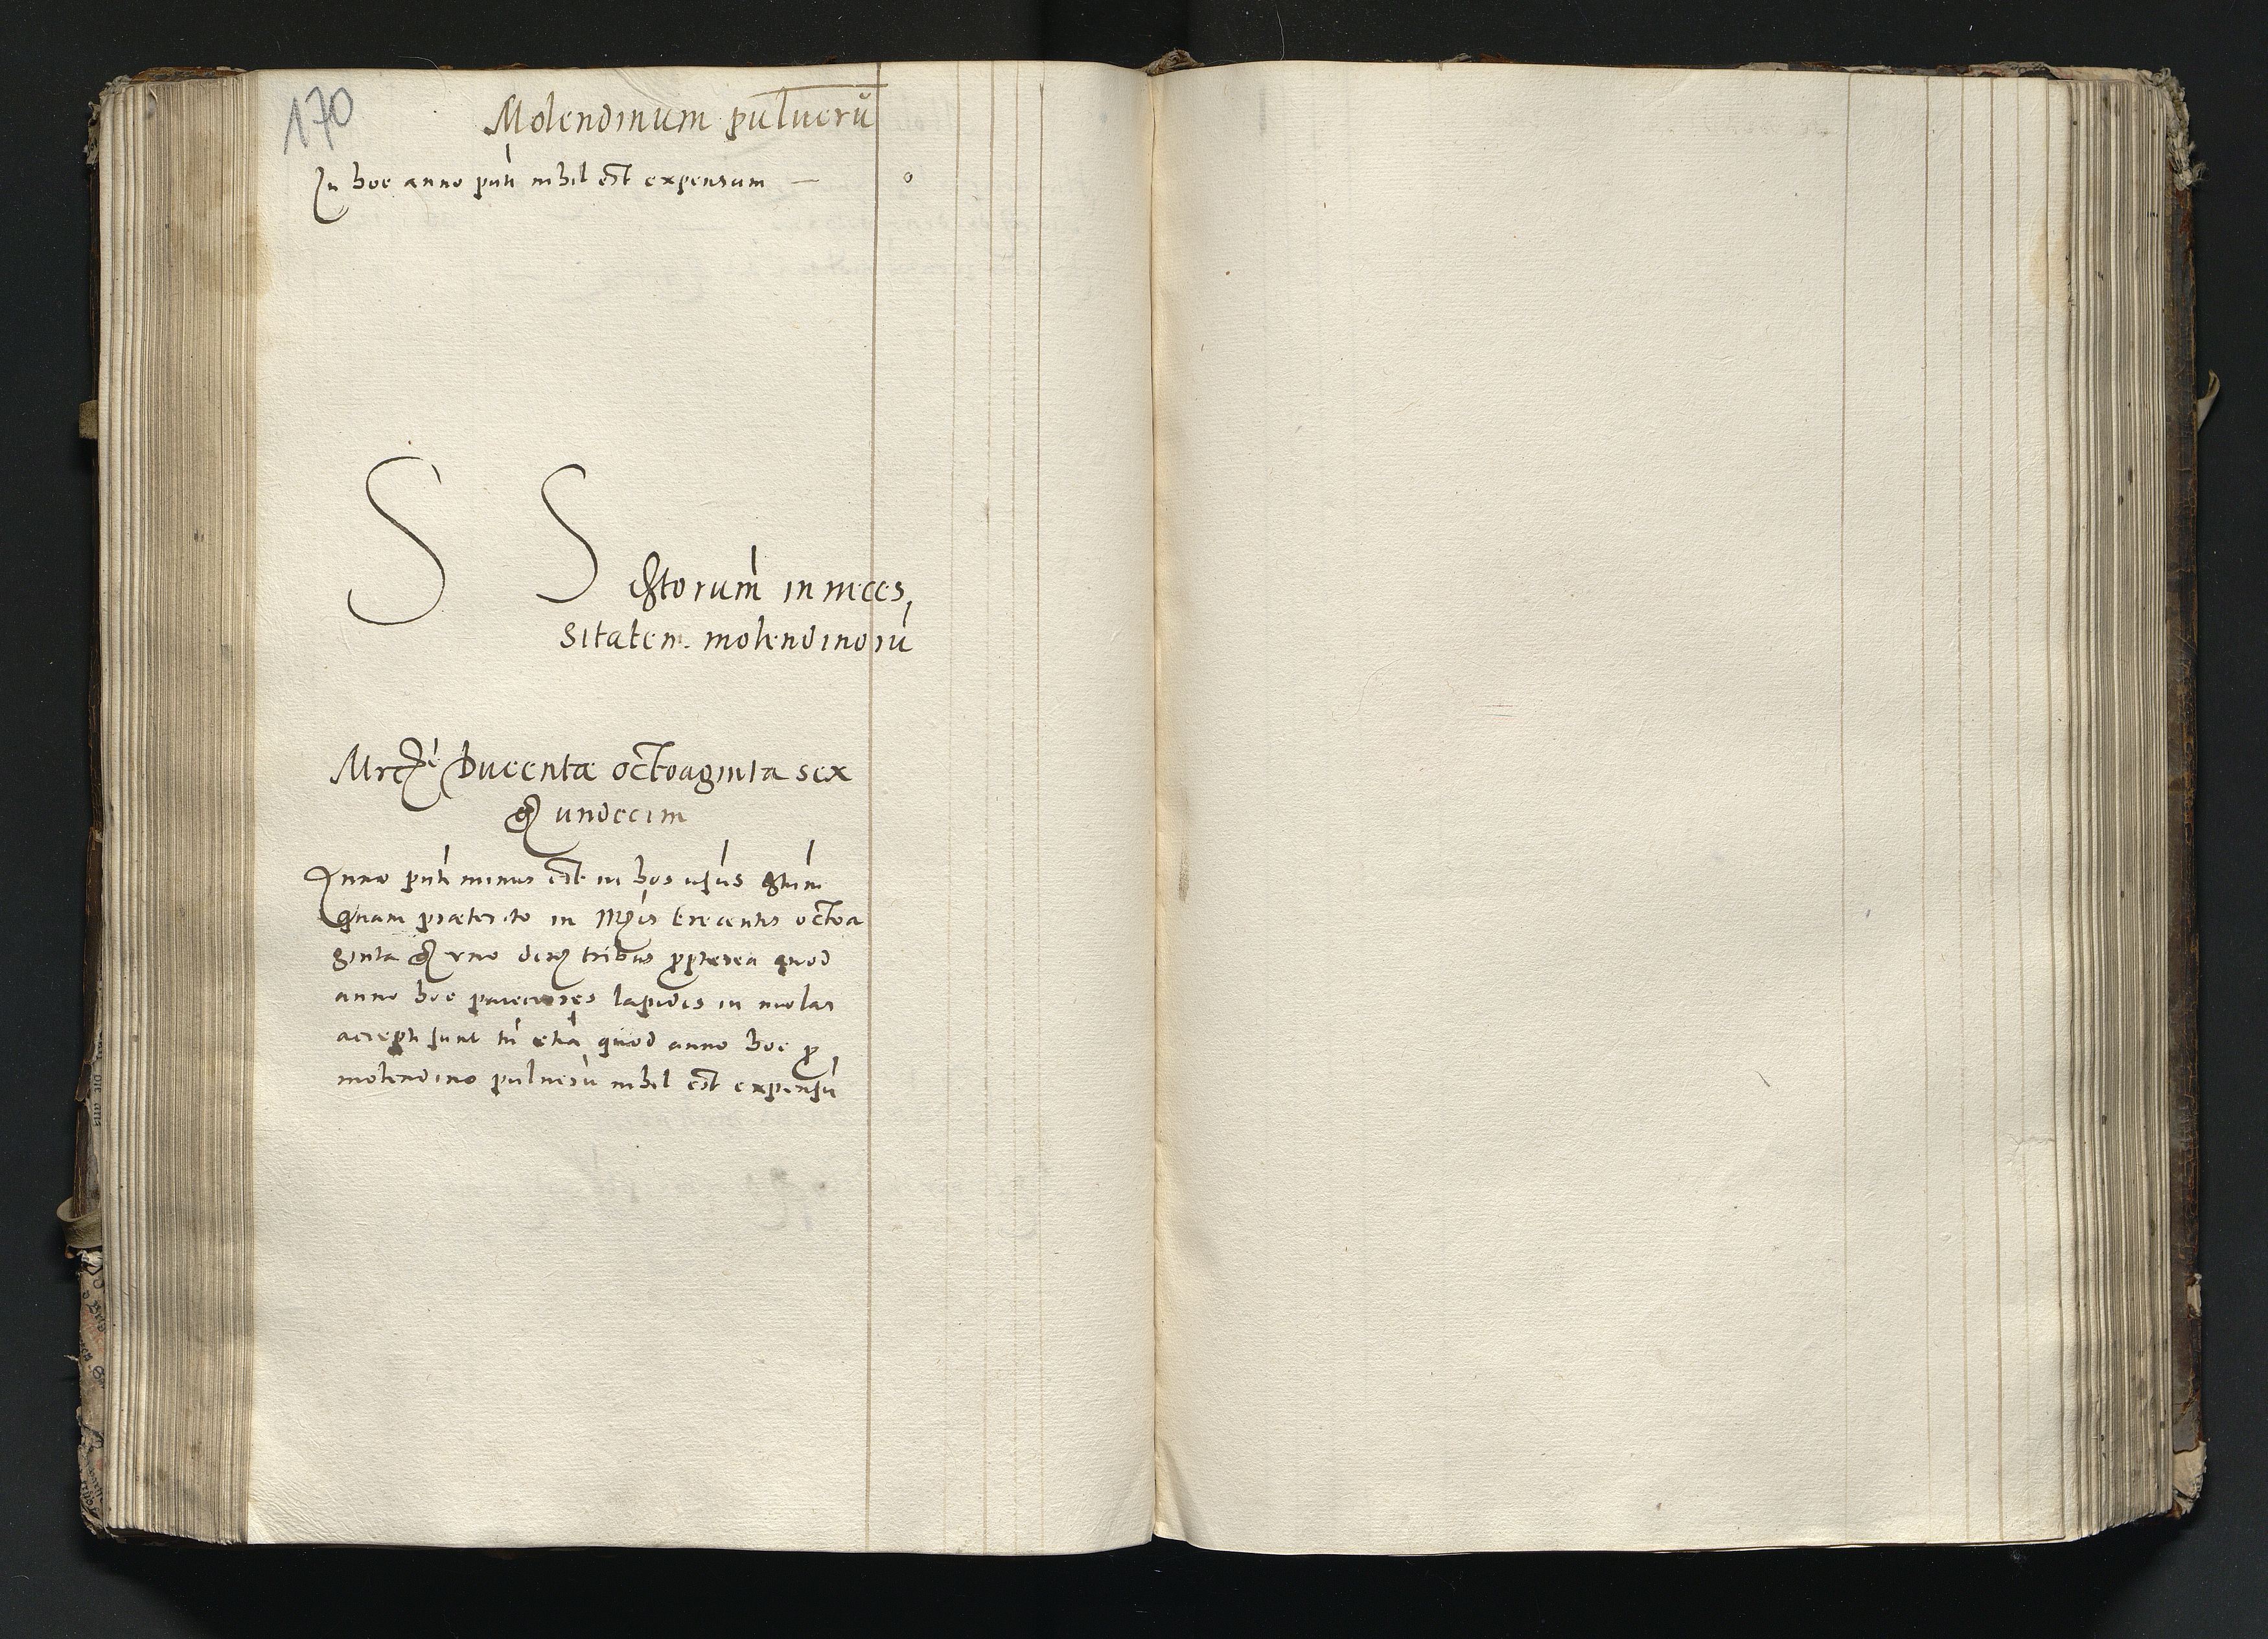 170
Molendinum pulverũ
In hoc anno pñti nihil est expensum — 0
S S estorum in neces,
sitatem molendinorũ
Mrcẽ Ducentæ octoaginta sex
gͦ undecim
Anno pñti minus est in hos usus gtum
quam præterito in Mcis trecentis octoa
ginta gͦ vno denͦ tribus ꝓpterea quod
anno hoc pauciores lapides in molas
accepti sunt tũ etiã quod anno hoc ꝓ
molendino pulverũ nihil est expensũ